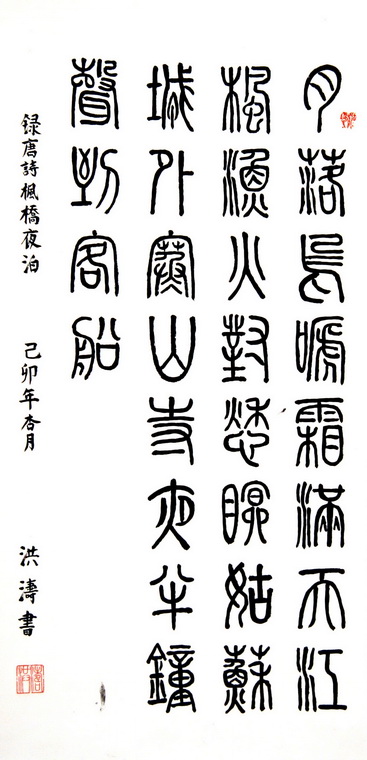 月落烏嗁霜滿天江
楓漁火對愁眠姑蘇
城外寒山寺夜半鐘
聲到客船
録唐詩楓橋夜泊 己卯年杏月 洪濤書